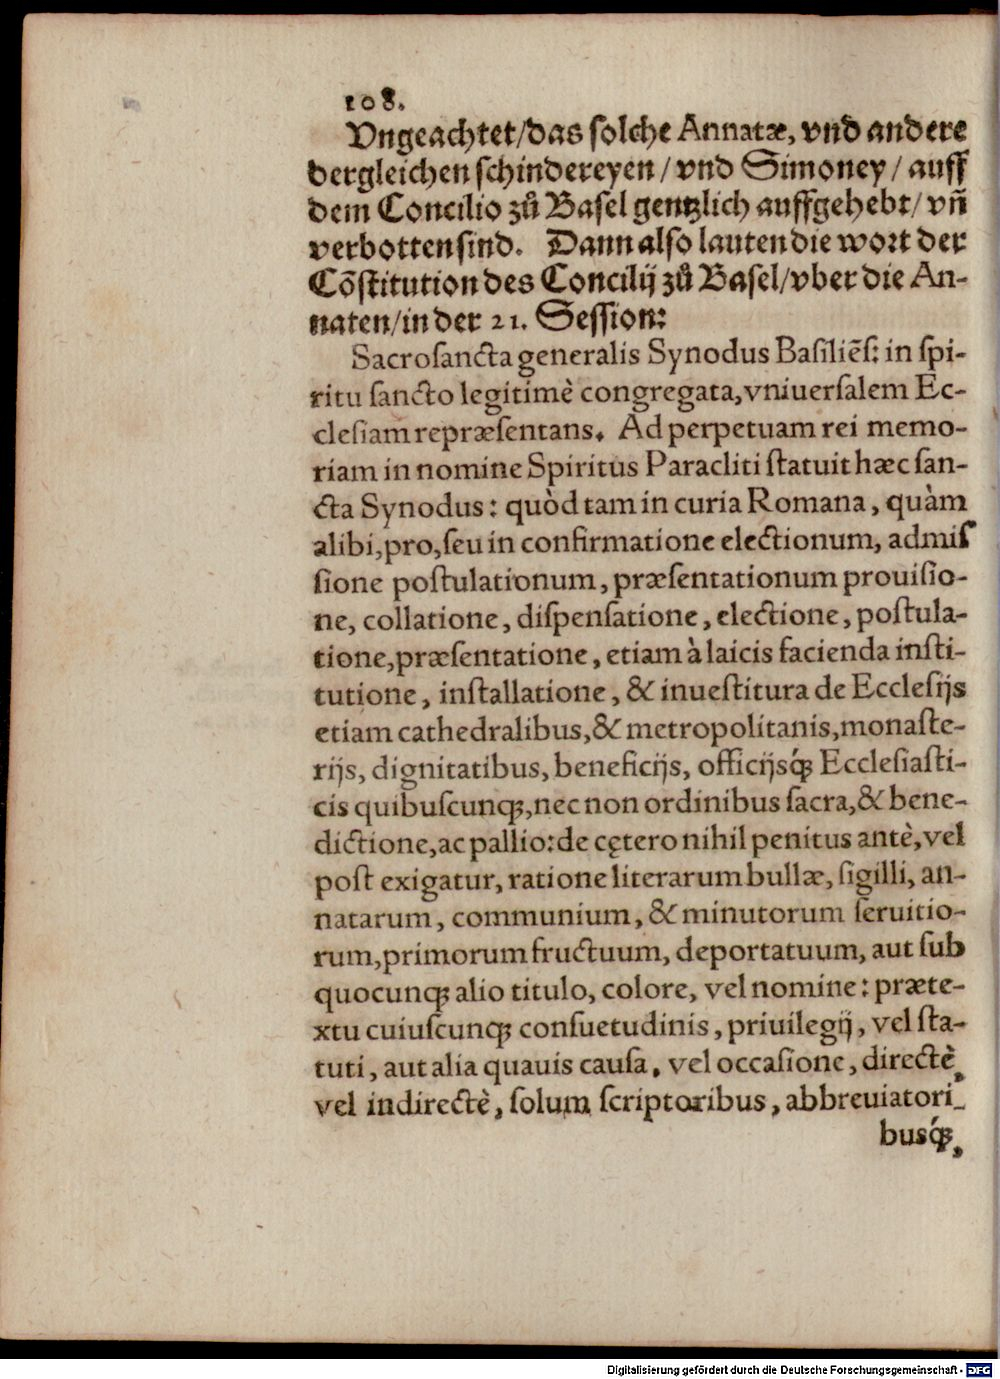 108.
Vngeachtet/das solche Annatæ, vnd andere
dergleichen schindereyen/vnd Simoney/auff
dem Concilio zů Basel gentzlich auffgehebt/vñ
verbotten sind. Dann also lauten die wort der
Cõstitution des Concilij zů Basel/vber die An-
naten/in der 21. Session:
Sacrosancta generalis Synodus Basiliẽſ: in ſpi-
ritu ſancto legitimè congregata, vniuerſalem Ec-
cleſiam repræſentans. Ad perpetuam rei memo-
riam in nomine Spiritus Paracliti ſtatuit hæc ſan-
cta Synodus: quòd tam in curia Romana, quàm
alibi, pro, ſeu in confirmatione electionum, admiſ
ſione poſtulationum, præſentationum prouiſio-
ne, collatione, diſpenſatione, electione, poſtula-
tione, præſentatione, etiam à laicis facienda inſti-
tutione, inſtallatione, & inueſtitura de Eccleſijs
etiam cathedralibus, & metropolitanis, monaſte-
rijs, dignitatibus, beneficijs, officijsq́ꝫ Eccleſiaſti-
cis quibuſcunqꝫ, nec non ordinibus ſacra, & bene-
dictione, ac pallio: de cętero nihil penitus antè, vel
poſt exigatur, ratione literarum bullæ, ſigilli, an-
natarum, communium, & minutorum ſeruitio-
rum, primorum fructuum, deportatuum, aut ſub
quocunqꝫ alio titulo, colore, vel nomine: præte-
xtu cuiuſcunqꝫ conſuetudinis, priuilegij, vel ſta-
tuti, aut alia quauis cauſa, vel occaſione, directè,
vel indirectè, ſolum ſcriptoribus, abbreuiatori-
busq́ꝫ,
Digitalisierung gefördert durch die Deutsche Forschungsgemeinschaft - DFG